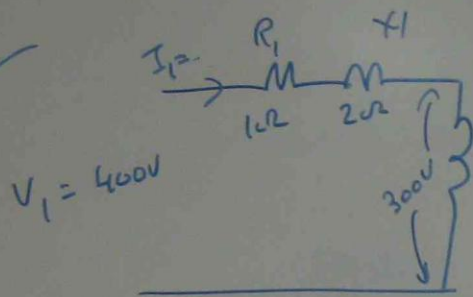 R₁ X1
I₁=
1Ω 2Ω
V₁ = 400V
300V